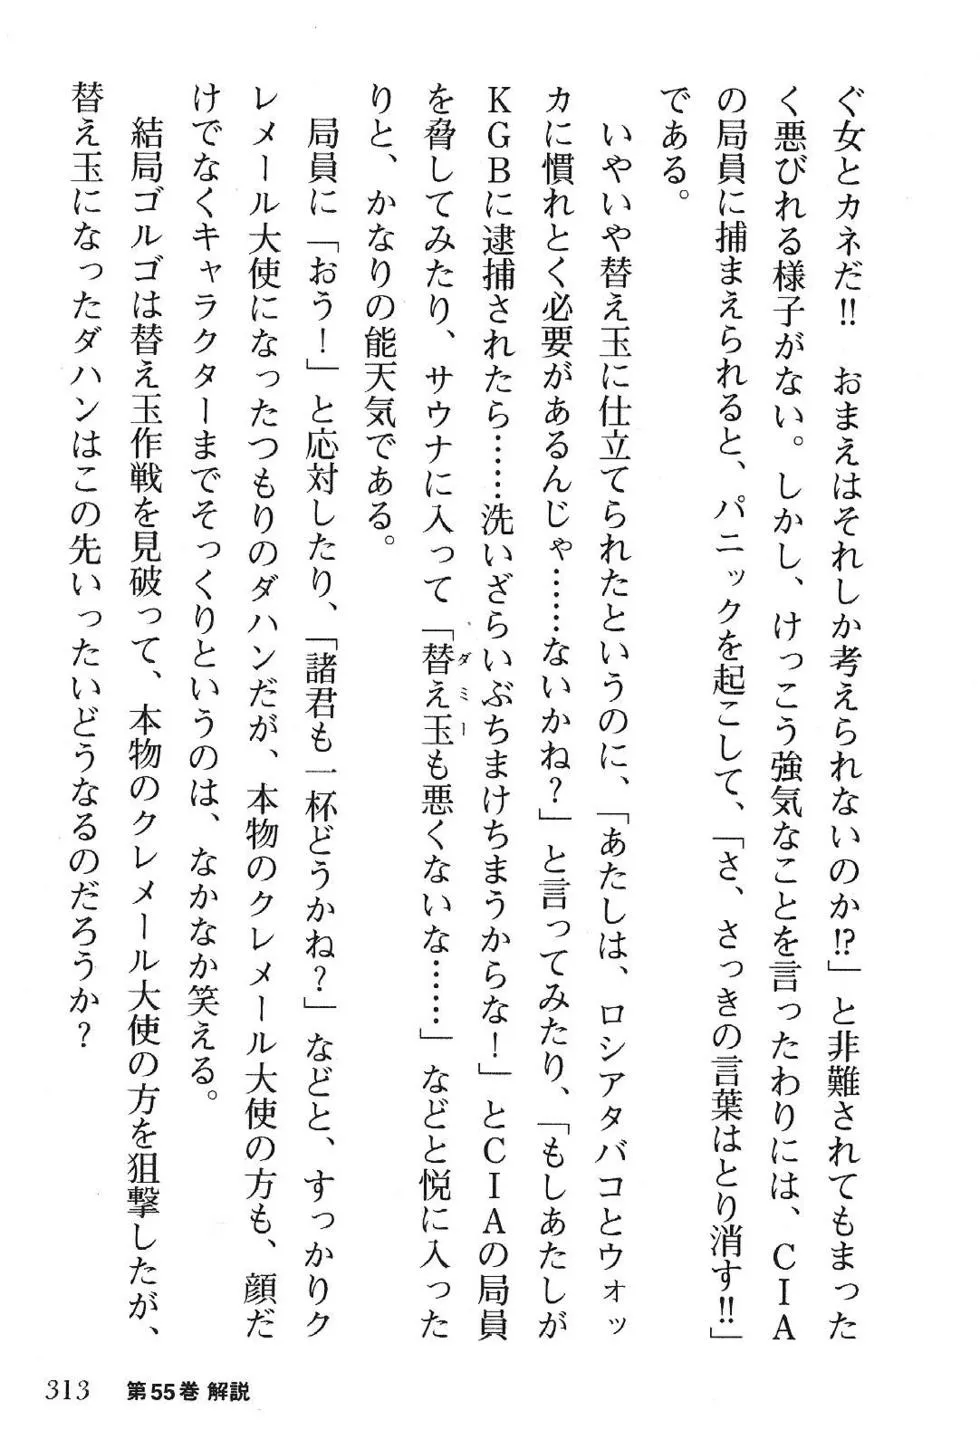 ぐ女とカネだ!!　おまえはそれしか考えられないのか!?」と非難されてもまった
く悪びれる様子がない。しかし、けっこう強気なことを言ったわりには、ＣＩＡ
の局員に捕まえられると、パニックを起こして、「さ、さっきの言葉はとり消す!!」
である。
　いやいや替え玉に仕立てられたというのに、「あたしは、ロシアタバコとウォッ
カに慣れとく必要があるんじゃ……ないかね？」と言ってみたり、「もしあたしが
ＫＧＢに逮捕されたら……洗いざらいぶちまけちまうからな！」とＣＩＡの局員
を脅してみたり、サウナに入って「替え玉も悪くないな……」などと悦に入った
ダミー
りと、かなりの能天気である。
　局員に「おう！」と応対したり、「諸君も一杯どうかね？」などと、すっかりク
レメール大使になったつもりのダハンだが、本物のクレメール大使の方も、顔だ
けでなくキャラクターまでそっくりというのは、なかなか笑える。
　結局ゴルゴは替え玉作戦を見破って、本物のクレメール大使の方を狙撃したが、
替え玉になったダハンはこの先いったいどうなるのだろうか？
313　第55巻 解説